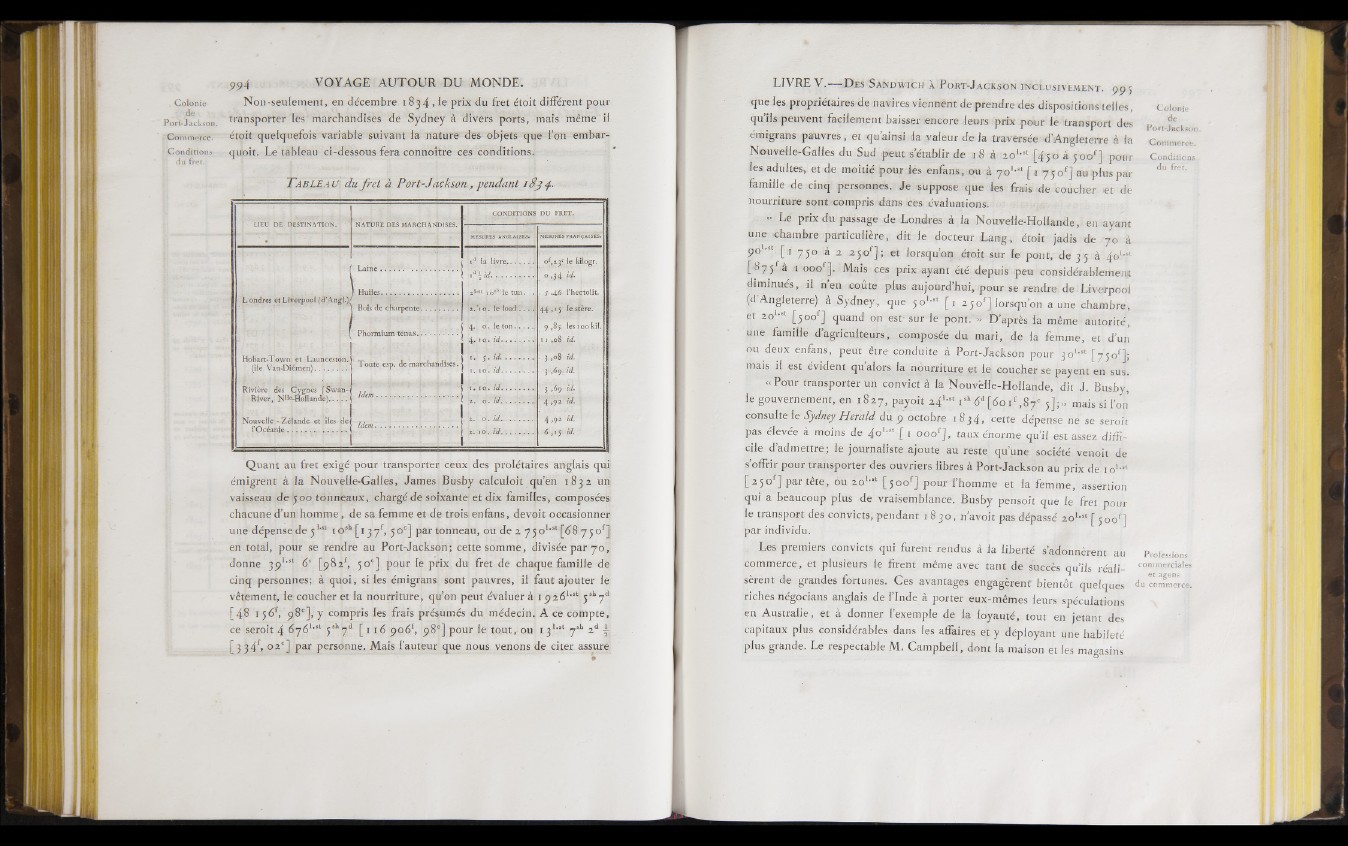 994 VOYAGE AUTOUR DU MONDE.
Colonie
de
Port-Jackson.
Commerce.
Conditions
du fret.
Non-seulement, en décembre 1834, le prix du fret étoit différent pour
transporter les marchandises de Sydney à divers ports, mais même il
étoit quelquefois variable suivant la nature des objets que l'on embar-
quoit. Le tableau ci-dessous fera connoître ces conditions.
TABLEAU du fret à Port-Jackson, pendant 1834.
LIEU DE DESTINATION. NATURE DES MARCHANDISES. CONDITIONS DU FRET.
MESURES ANGLAISES. MESURES FRANÇAISES.
Londres et Liverpool (d'Angl.) Laine 1d la livre 0f,23c le kilogr.
1d ½ id. 0,34 id.
Huiles 2l.st 10sh le tun. 7,46 l'hectolit.
Bois de charpente 2. 10. le load 44,15 le stère.
Phormium tenax 4. 0. le ton 9,83 les 100 kil.
4. 10. id. 11,08 id.
Hobart-Town et Launceston. (île Van-Diémen) Toute esp. de marchandises. 1. 5. id. 3,08 id.
1. 10. id. 3,69 id.
Rivière des Cygnes (Swan-River, Nlle-Hollande) Idem 1. 10. id. 3,69 id.
2. 0. id. 4,92 id.
Nouvelle-Zélande et îles de l'Océanie Idem 2. 0. id. 4,92 id.
2. 10. id. 6,15 id.
Quant au fret exigé pour transporter ceux des prolétaires anglais qui
émigrent à la Nouvelle-Galles, James Busby calculoit qu'en 1832 un
vaisseau de 500 tonneaux, chargé de soixante et dix familles, composées
chacune d'un homme, de sa femme et de trois enfans, devoit occasionner
une dépense de 5l.st 10sh [137f, 50c] par tonneau, ou de 2 750l.st [68 750f]
en total, pour se rendre au Port-Jackson; cette somme, divisée par 70,
donne 39l.st 6s [982f, 50c] pour le prix du fret de chaque famille de
cinq personnes; à quoi, si les émigrans sont pauvres, il faut ajouter le
vêtement, le coucher et la nourriture, qu'on peut évaluer à 1 926l.st 5sh 7d
[48 156f, 98c], y compris les frais présumés du médecin. A ce compte,
ce seroit 4 676l.st 5sh 7d [116 906f, 98c] pour le tout, ou 13l.st 7sh 2d
[334f, 02c] par personne. Mais l'auteur que nous venons de citer assure
LIVRE V.—DES SANDWICH À PORT-JACKSON INCLUSIVEMENT. 995
que les propriétaires de navires viennent de prendre des dispositions telles,
qu'ils peuvent facilement baisser encore leurs prix pour le transport des
émigrans pauvres, et qu'ainsi la valeur de la traversée d'Angleterre à la
Nouvelle-Galles du Sud peut s'établir de 18 à 20l.st [450 à 500f] pour
les adultes, et de moitié pour les enfans, ou à 70l.st [1 750f] au plus par
famille de cinq personnes. Je suppose que les frais de coucher et de
nourriture sont compris dans ces évaluations.
Colonie
de
Port-Jackson.
Commerce.
Conditions
du fret.
« Le prix du passage de Londres à la Nouvelle-Hollande, en ayant
une chambre particulière, dit le docteur Lang, étoit jadis de 70 à
90l.st [1 750 à 2 250f]; et lorsqu'on étoit sur le pont, de 35 à 40l.st
[875f à 1 000f]. Mais ces prix ayant été depuis peu considérablement
diminués, il n'en coûte plus aujourd'hui, pour se rendre de Liverpool
(d'Angleterre) à Sydney, que 50l.st [1 250f] lorsqu'on a une chambre,
et 20l.st [500f] quand on est sur le pont. » D'après la même autorité,
une famille d'agriculteurs, composée du mari, de la femme, et d'un
ou deux enfans, peut être conduite à Port-Jackson pour 30l.st [750f];
mais il est évident qu'alors la nourriture et le coucher se payent en sus.
« Pour transporter un convict à la Nouvelle-Hollande, dit J. Busby,
le gouvernement, en 1827, payoit 24l.st 1sh 6d [601f,87c 5]; » mais si l'on
consulte le Sydney Herald du 9 octobre 1834, cette dépense ne se seroit
pas élevée à moins de 40l.st [1 000f], taux énorme qu'il est assez diffi-
cile d'admettre; le journaliste ajoute au reste qu'une société venoit de
s'offrir pour transporter des ouvriers libres à Port-Jackson au prix de 10l.st
[250f] par tête, ou 20l.st [500f] pour l'homme et la femme, assertion
qui a beaucoup plus de vraisemblance. Busby pensoit que le fret pour
le transport des convicts, pendant 1830, n'avoit pas dépassé 20l.st [500f]
par individu.
Les premiers convicts qui furent rendus à la liberté s'adonnèrent au
commerce, et plusieurs le firent même avec tant de succès qu'ils réali-
sèrent de grandes fortunes. Ces avantages engagèrent bientôt quelques
riches négocians anglais de l'Inde à porter eux-mêmes leurs spéculations
en Australie, et à donner l'exemple de la loyauté, tout en jetant des
capitaux plus considérables dans les affaires et y déployant une habileté
plus grande. Le respectable M. Campbell, dont la maison et les magasins
Professions
commerciales
et agens
du commerce.